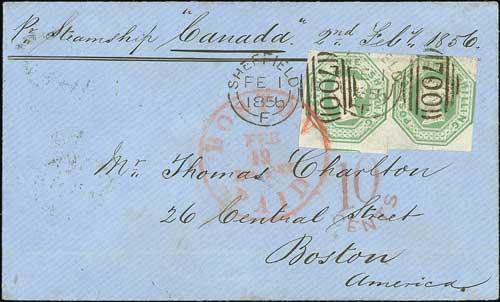 Pr Steamship "Canada" 2nd Feby 1856
SHEFFIELD
FE 1
1856
F
700
700
BOSTON
FEB
19
PAID
10
CENTS
Mr. Thomas Charlton
26 Central Street
Boston
America